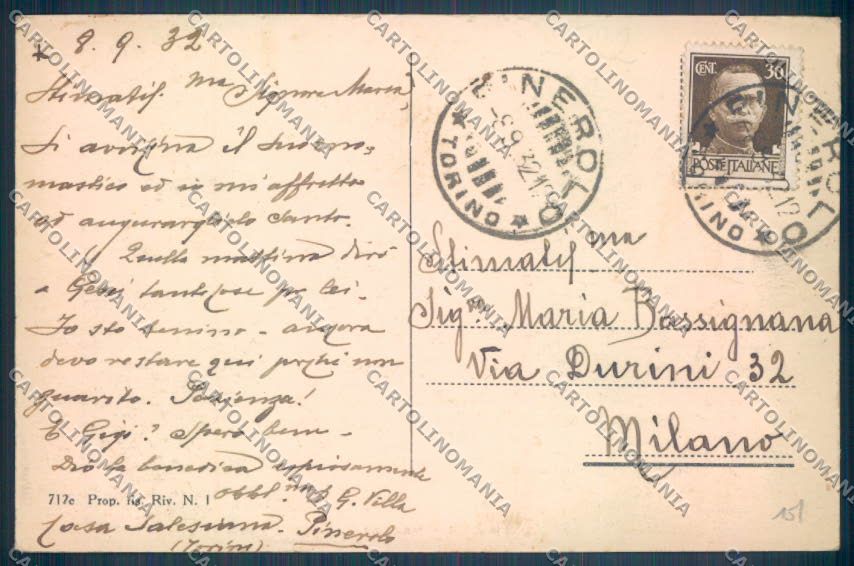 8. 9. 32
Stimatis.ma Signora Maria,
Si avvicina il Suo ono-
mastico ed io mi affretto
ad augurarglielo santo.
Quella mattina dirò
a Gesù tante cose per lei.
Io sto benino - ancora
devo restare qui perché non
guarito. Pazienza!
E Gigi? Spero bene -
Dio la benedica copiosamente
obbl.mo G. Villa
Casa Salesiana. Pinerolo
(Torino)
717c Prop. ris. Riv. N. 1
PINEROLO
* TORINO *
CENT. 30
POSTE ITALIANE
PINEROLO
* TORINO *
Stimatis.ma
Sig.na Maria Bassignana
Via Durini 32
Milano
151
CARTOLINOMANIA